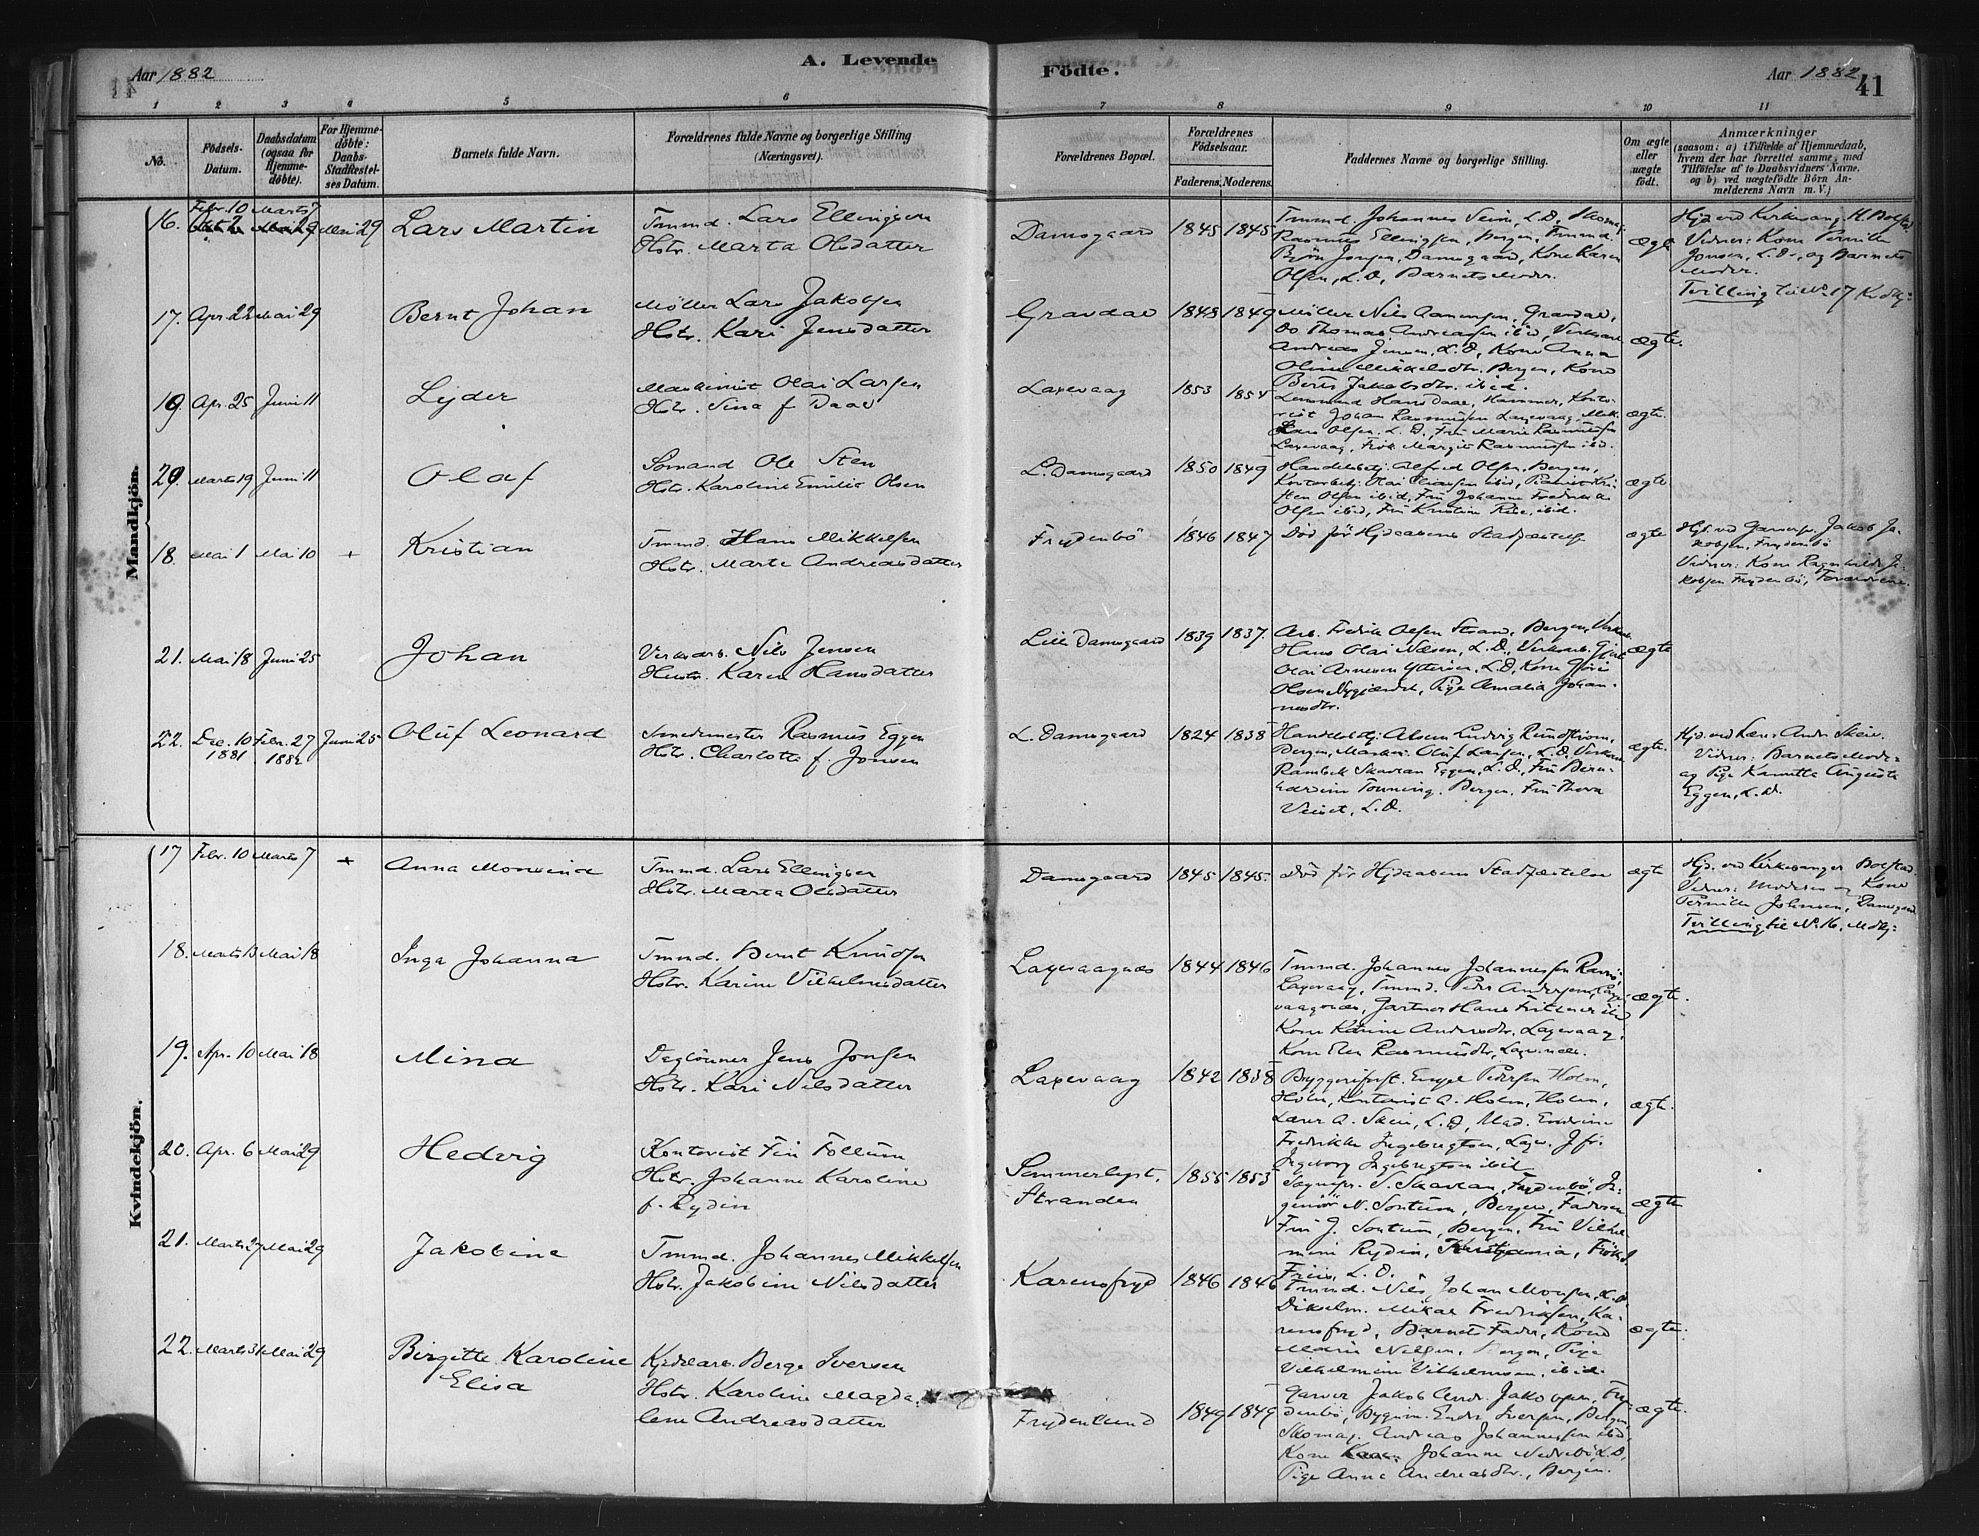 Aar 1882
A. Levende
Födte.
Aar 1882
41
1 2 3 4 5 6 7 8 9 10 11
No.
Födsels-
Datum.
Daabsdatum
(ogsaa for
Hjemme-
döbte).
For Hjemme-
döbte:
Daabs-
Stadfæstel-
ses Datum.
Barnets fulde Navn.
Forældrenes fulde Navne og borgerlige Stilling
(Næringsvei).
Forældrenes Bopæl.
Forældrenes
Födselsaar.
Faderens. Moderens.
Faddernes Navne og borgerlige Stilling.
Om ægte
eller
uægte
födt.
Anmærkninger
(saasom: a) i Tilfælde af Hjemmedaab,
hvem der har forrettet samme, med
Tilföielse af to Daabsvidners Navne.
og b) ved uægtefödte Börn An-
melderens Navn m. V.)
Mandkjön.
16. Febr. 10 Marts 7 Mai 29 Lars Martin
Tmmd. Lars Ellingsen
Hstr. Marta Olsdatter
Damsgaard 1845 1845
Tmmd. Johannes Seim, L.D., Skomag.
Rasmus Ellingsen, Bergen, Tmmd.
Björn Jonsen, Damsgaard, Kone Karen
Olsen, L.D., Barnets Moder.
ægte
Hjd. ved Kirkesang. H. Bolstad
Vidner: Kone Pernille
Jonsen, L.D., og Barnets
Moder.
Tvilling til No 17 Kvdkj:
17. Apr. 22 Mai 29 Bernt Johan
Möller Lars Jakobsen
Hstr. Kari Jensdatter
Gravdal 1848 1849
Möller Nils Aamunsen, Gravdal,
Do Thomas Andreassen ibid, Verksarb
Andreas Jensen, L.D., Kone Anna
Oline Mikkelsdtr. Bergen, Kone
Berte Jakobsdtr. ibid.
ægte.
19. Apr. 25 Juni 11 Lyder
Maskinist Olai Larsen
Hstr. Sina f. Daae
Laxevaag 1853 1854
Lensmand Hans Daae, Hammer, Konto-
rist Johan Rasmussen Laxevaag, Mask.
Lars Olsen, L.D., Frü Marie Rasmussen
Laxevaag, Frök. Margit Rasmussen ibid.
ægte.
20. Marts 19 Juni 11 Olaf
Sömand Ole Sten
Hstr. Karoline Emilie Olsen
L. Damsgaard 1850 1849
Handelsbetj. Alfred Olsen, Bergen,
Olsen ibid, Frü Johanne Fredrikke
Olsen ibid, Frü Kristine Rise, ibid.
ægte
18. Mai 1 Mai 10 + Kristian
Tmmd. Hans Mikkelsen
Hstr. Marte Andreasdatter
Frydenbö 1846 1847
Död för Hjdaabens Stadfæstelse
ægte
Hjd. ved Garversv. Jakob Ja-
kobsen, Frydenbö
Vidner: Kone Ragnhilde Ja-
kobsen Frydenbö, Forældrene.
21. Mai 18 Juni 25 Johan
Verksarb. Nils Jensen
Hustr. Karen Hansdatter
Lille Damsgaard 1839 1837.
Arb. Fredrik Olsen Strand, Bergen, Verksarb.
Hans Olai Næsen, L.D., Verksarb. Gjert
Olai Arnesen Ytteröen, L.D., Kone Gjöri
Olsen Nygjærdet, Pige Amalia Johan-
nesdtr.
ægte
22. Dec. 10 1881 Febr. 27 1882 Juni 25 Olüf Leonard
Smedemester Rasmus Eggen
Hstr. Charlotte f. Jonsen
L. Damsgaard 1824 1838
Handelsbetj. Alsen Ludvig Rundstrøm,
Bergen, Maskin. Oluf Larsen, L.D., Verksarb
Rambek Skavran Eggen, L.D., Frü Bern-
hardine Tönning, Bergen, Frü Thora
Veiset, L.D.
ægte.
Hjd. ved Lær. Andr. Skeie.
Vidner: Barnets Moder
og Pige Kamilla Augusta
Eggen, L.D.
Kvindekjön.
17 Febr. 10 Marts 7 + Anna Monsine
Tmmd. Lars Ellingsen
Hstr. Marta Olsdatter
Damsgaard 1845 1845
Död för Hjdaabens Stadfæstelse
ægte
Hjd. ved Kirkesanger Bolstad.
Vidner: Moderen og Kone
Pernille Johnsen, Damsgaard
Tvilling til No 16, Mdkj:
18. Marts 13 Mai 18 Inga Johanna
Tmmd. Bernt Knudsen
Hstr. Karine Vilhelmsdatter
Laxevaagnæs 1844 1846
Tmmd. Johannes Johannessen Ravnö,
Laxevaag, Tmmd. Peder Andersen, Laxe-
vaagnæs, Gartner Hans Frithner ibid
Kone Karine Andersdtr., Laxevaag,
Kone Elen Rasmusdtr, Laxevaag.
ægte.
19. Apr. 10 Mai 18 Mina
Daglönner Jens Jonsen
Hstr. Kari Nilsdatter
Laxevaag 1842 1838
Byggerifuld. Engel Pedersen Holm,
Holm, Kontorist A. Holm, Holm,
Lærer A. Skeie, L.D., Mad. Endrine
Fredrikke Ingebregtsen, Laxev. Jfr.
Ingeborg Ingebregtsen ibid
ægte.
20. Apr. 6 Mai 29 Hedvig
Kontorist Fin Follum
Hstr. Johanne Karoline
f. Rydin
Sommerlyst,
Stranden
1855 1853
Sognepr. S. Skavlan, Frydenbö, In-
geniör N. Sontum, Bergen, Faderen
Frü J. Sontum, Bergen, Frü Vilhel-
mine Rydin, Kristiania, Frök. J.
Friis, L.D.
ægte
21. Marts 27 Mai 29 Jakobine
Tmmd. Johannes Mikkelsen
Hstr. Jakobine Nilsdatter
Karensfryd 1846 1846
Tmmd. Nils Johan Monsen, L.D.
Dikselm. Mikal Fredriksen, Ka-
rensfryd, Barnets Fader, Kone
Marie Nilsen, Bergen, Pige
Vilhelmine Vilhelmsen, ibid.
ægte.
22. Marts 31 Mai 29 Birgitte Karoline
Elisa
Kjedelarb. Berge Iversen
Hstr. Karoline Magda-
lene Andreasdatter
Frydenlund 1849 1849
Garver Jakob Andr. Jakobsen, Fry-
denbö, Bygm. Endr. Iversen, Bergen,
Skomag. Andreas Johannessen ibid,
Kone Johanne Nedrebö, L.D,
Pige Anna Andreasdtr., Bergen.
ægte.